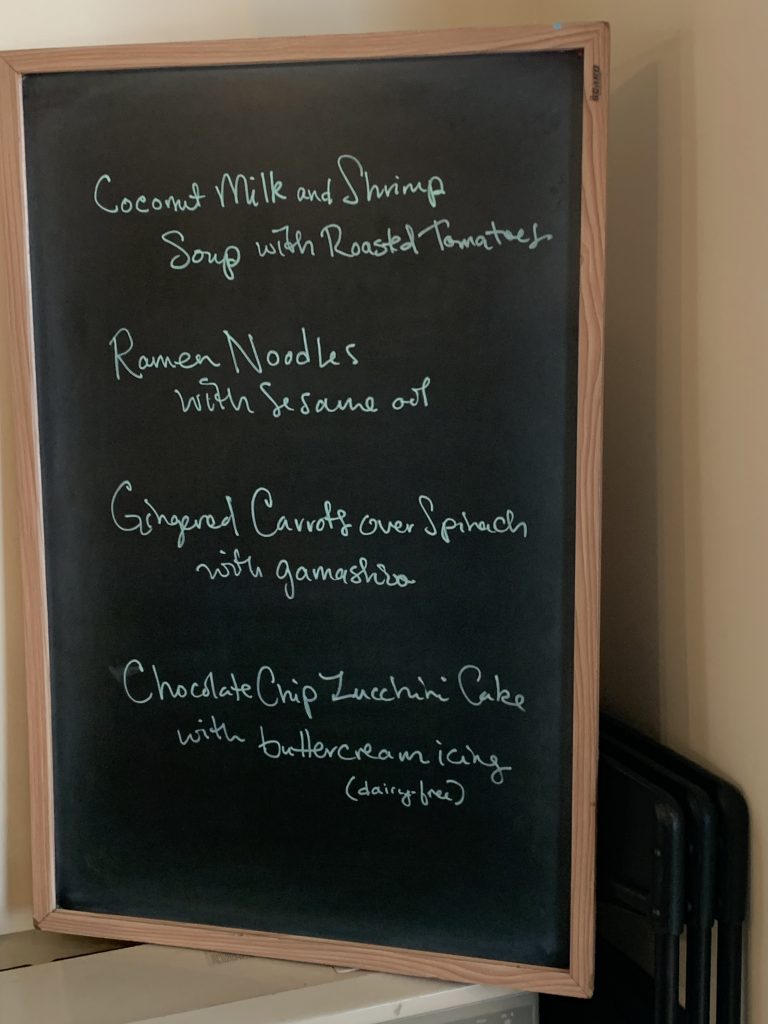 Coconut Milk and Shrimp
Soup with Roasted Tomatoes
Ramen Noodles
with Sesame oil
Gingered Carrots over Spinach
with gamashio
Chocolate Chip Zucchini Cake
with buttercream icing
(dairy-free)